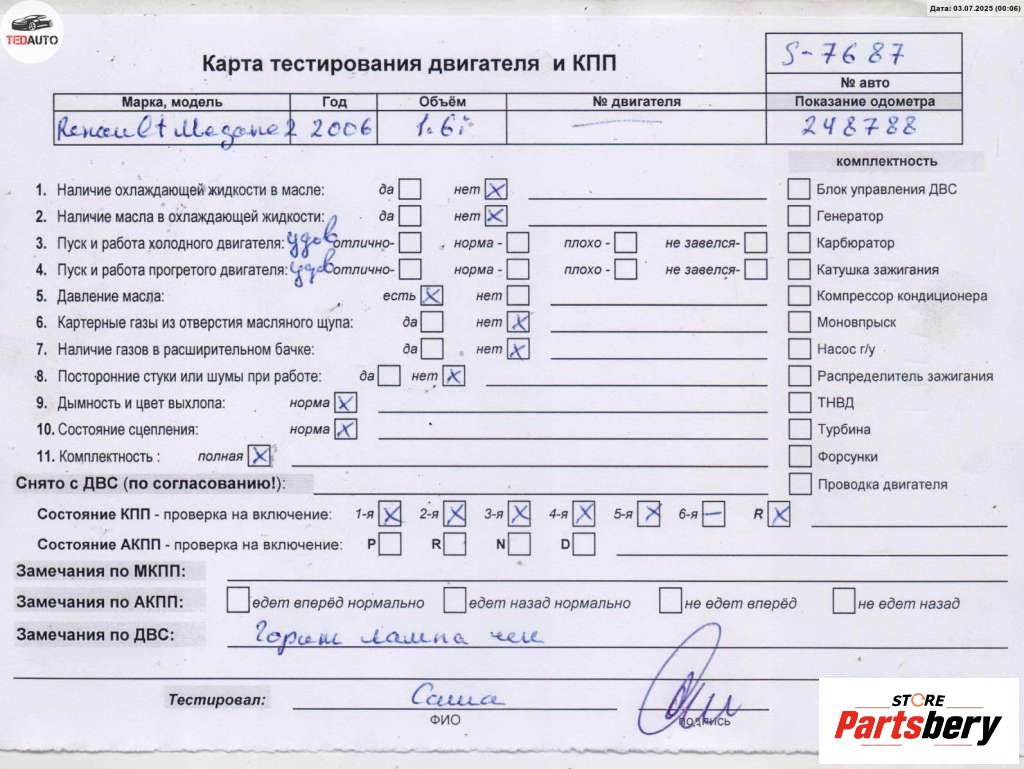 Дата: 03.07.2025 (00:06)
TEDAUTO
Карта тестирования двигателя и КПП
S-7687
№ авто
Марка, модель Год Объём № двигателя Показание одометра
Renault Megane 2 2006 1.6i 248788
комплектность
1. Наличие охлаждающей жидкости в масле: да нет X Блок управления ДВС
2. Наличие масла в охлаждающей жидкости: да нет X Генератор
3. Пуск и работа холодного двигателя: удов отлично- норма - плохо - не завелся- Карбюратор
4. Пуск и работа прогретого двигателя: удов отлично- норма - плохо - не завелся- Катушка зажигания
5. Давление масла: есть X нет Компрессор кондиционера
6. Картерные газы из отверстия масляного щупа: да нет X Моновпрыск
7. Наличие газов в расширительном бачке: да нет X Насос г/у
8. Посторонние стуки или шумы при работе: да нет X Распределитель зажигания
9. Дымность и цвет выхлопа: норма X ТНВД
10. Состояние сцепления: норма X Турбина
11. Комплектность : полная X Форсунки
Снято с ДВС (по согласованию!): Проводка двигателя
Состояние КПП - проверка на включение: 1-я X 2-я X 3-я X 4-я X 5-я X 6-я — R X
Состояние АКПП - проверка на включение: P R N D
Замечания по МКПП:
Замечания по АКПП: едет вперёд нормально едет назад нормально не едет вперёд не едет назад
Замечания по ДВС: Горит лампа чек
Тестировал: Саша
ФИО подпись
STORE
Partsbery